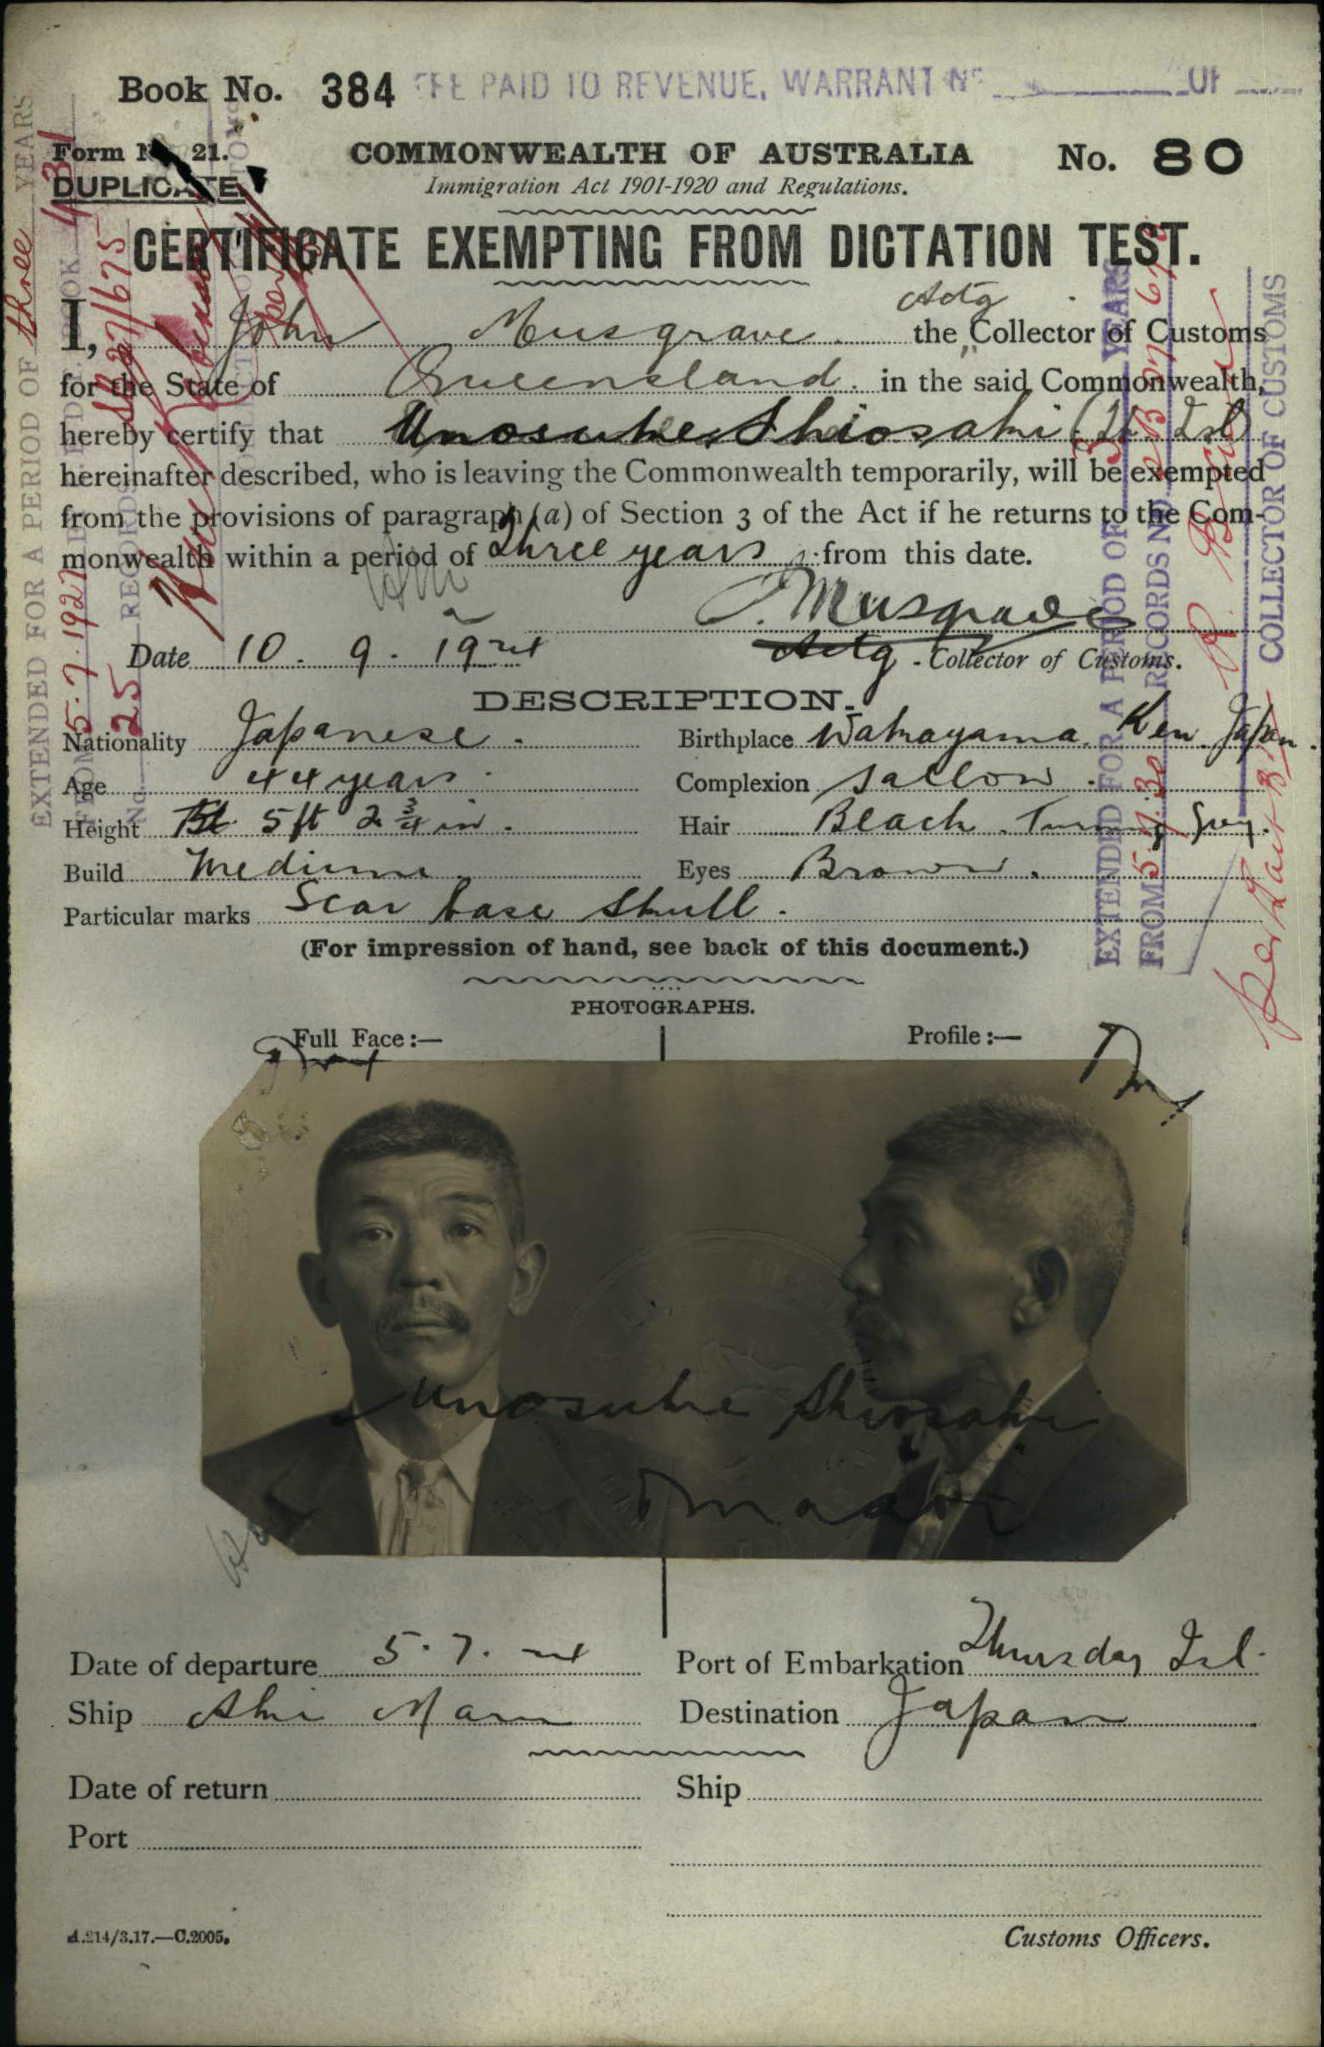 Book No. 384 FEE PAID TO REVENUE, WARRANT No OF
Form No 21. COMMONWEALTH OF AUSTRALIA No. 80
DUPLICATE Immigration Act 1901-1920 and Regulations.
CERTIFICATE EXEMPTING FROM DICTATION TEST.
Actg
I, John Musgrave the Collector of Customs
for the State of Queensland in the said Commonwealth,
hereby certify that Unosuke Shiosaki (Th. Isl)
hereinafter described, who is leaving the Commonwealth temporarily, will be exempted
from the provisions of paragraph (a) of Section 3 of the Act if he returns to the Com-
monwealth within a period of three years from this date.
J. Musgrave
Date 10. 9. 1924 Actg Collector of Customs.
DESCRIPTION.
Nationality Japanese. Birthplace Wakayama Ken Japan.
Age 44 years. Complexion Sallow.
Height 5 ft 2 3/4 in. Hair Black Turning Grey.
Build Medium Eyes Brown.
Particular marks Scar base skull.
(For impression of hand, see back of this document.)
PHOTOGRAPHS.
Full Face:— Profile:—
Unosuke Shiosaki
Date of departure 5. 7. 24 Port of Embarkation Thursday Isl.
Ship Aki Maru Destination Japan
Date of return Ship
Port
A.214/3.17.—C.2005. Customs Officers.
EXTENDED FOR A PERIOD OF three YEARS
FROM 5.7.1927
No. 25 RECORDS 27/675
EXTENDED FOR A PERIOD OF 3 YEARS
FROM 5.7.30 RECORDS No.
COLLECTOR OF CUSTOMS